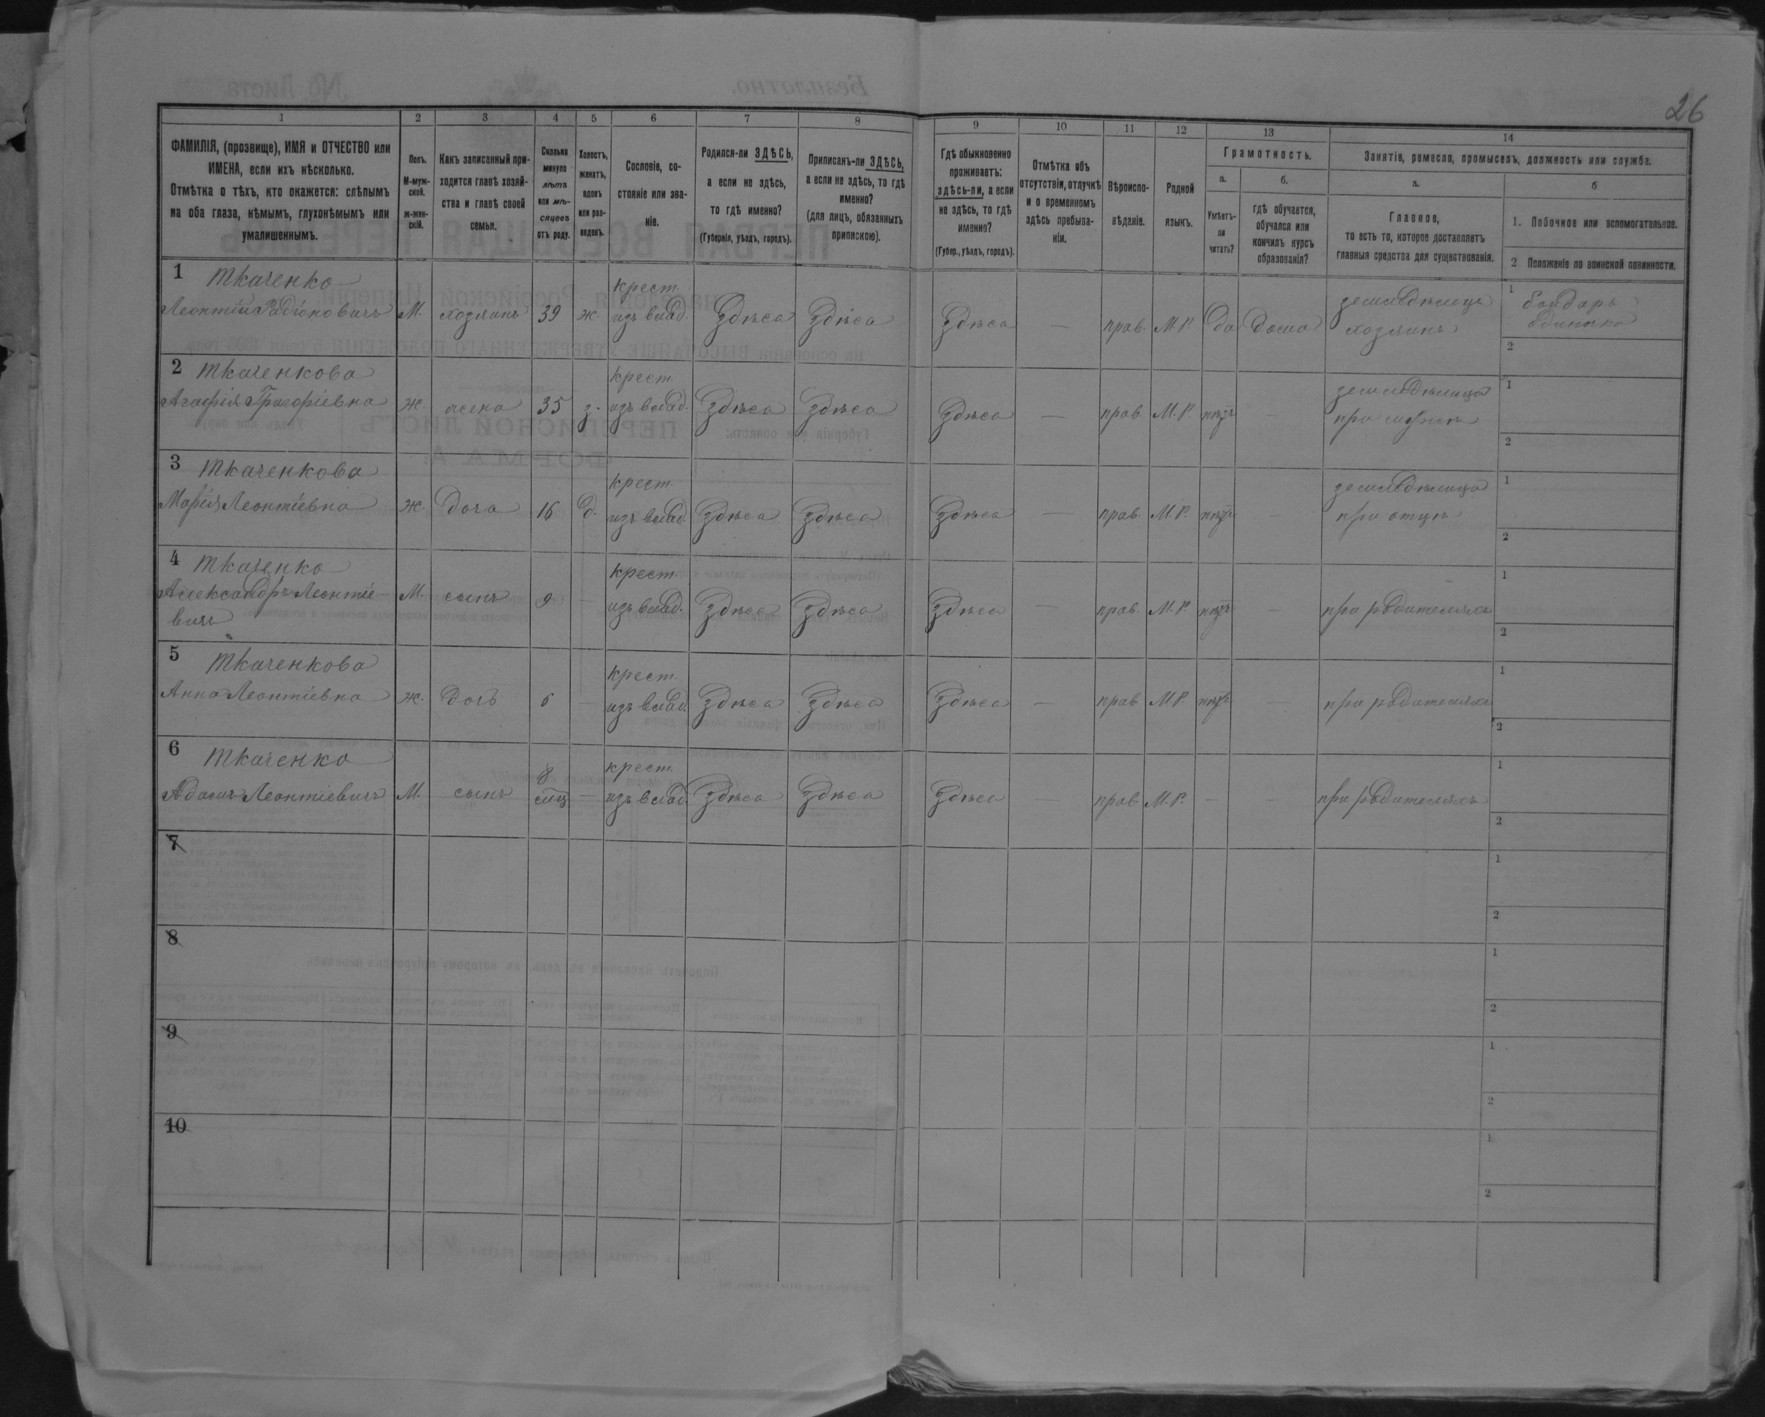 26
1 2 3 4 5 6 7 8 9 10 11 12 13 14
ФАМИЛІЯ, (прозвище), ИМЯ и ОТЧЕСТВО или
ИМЕНА, если ихъ нѣсколько.
Отмѣтка о тѣхъ, кто окажется: слѣпымъ
на оба глаза, нѣмымъ, глухонѣмымъ или
умалишеннымъ.
Полъ.
М-муж-
ской.
ж-жен-
скій.
Какъ записанный при-
ходится главѣ хозяй-
ства и главѣ своей
семьи.
Сколько
минуло
лѣтъ
или мѣ-
сяцевъ
отъ роду.
Холостъ,
женатъ,
вдовъ
или раз-
веденъ.
Сословіе, со-
стояніе или зва-
ніе.
Родился-ли ЗДѢСЬ,
а если не здѣсь,
то гдѣ именно?
(Губернія, уѣздъ, городъ).
Приписанъ-ли ЗДѢСЬ,
а если не здѣсь, то гдѣ
именно?
(для лицъ, обязанныхъ
припискою).
Гдѣ обыкновенно
проживаетъ:
здѣсь-ли, а если
не здѣсь, то гдѣ
именно?
(Губер., уѣздъ, городъ).
Отмѣтка объ
отсутствіи, отлучкѣ
и о временномъ
здѣсь пребыва-
ніи.
Вѣроиспо-
вѣданіе.
Родной
языкъ.
Грамотность.
а.
Умѣетъ-
ли
читать?
б.
гдѣ обучается,
обучался или
кончилъ курсъ
образованія?
Занятіе, ремесло, промыселъ, должность или служба.
а.
Главное,
то есть то, которое доставляетъ
главныя средства для существованія.
б
1. Побочное или вспомогательное.
2 Положеніе по воинской повинности.
1 Ткаченко крест. земледѣлецъ 1 бондарь
Леонтій Радіоновичъ М. хозяинъ 39 ж. изъ влад. Здѣсь Здѣсь Здѣсь — прав. М.Р. да дома хозяинъ
2
2 Ткаченкова крест. земледѣлица 1
Агафія Григоріевна ж. жена 35 з. изъ влад. Здѣсь Здѣсь Здѣсь — прав. М.Р. нѣтъ — при мужѣ
2
3 Ткаченкова крест. земледѣлица 1
Марія Леонтіевна ж. Доча 16 д. изъ влад. Здѣсь Здѣсь Здѣсь — прав. М.Р. нѣтъ — при отцѣ
2
4 Ткаченко крест. 1
Александръ Леонтіе- М. сынъ 9 — изъ влад. Здѣсь Здѣсь Здѣсь — прав. М.Р. нѣтъ — при родителяхъ
вичъ 2
5 Ткаченкова крест. 1
Анна Леонтіевна ж. Дочь 6 — изъ влад. Здѣсь Здѣсь Здѣсь — прав. М.Р. нѣтъ — при родителяхъ
2
6 Ткаченко 8 крест. 1
Адамъ Леонтіевичъ М. сынъ мѣц — изъ влад. Здѣсь Здѣсь Здѣсь — прав. М.Р. — — при родителяхъ
2
7 1
2
8 1
2
9 1
2
10 1
2